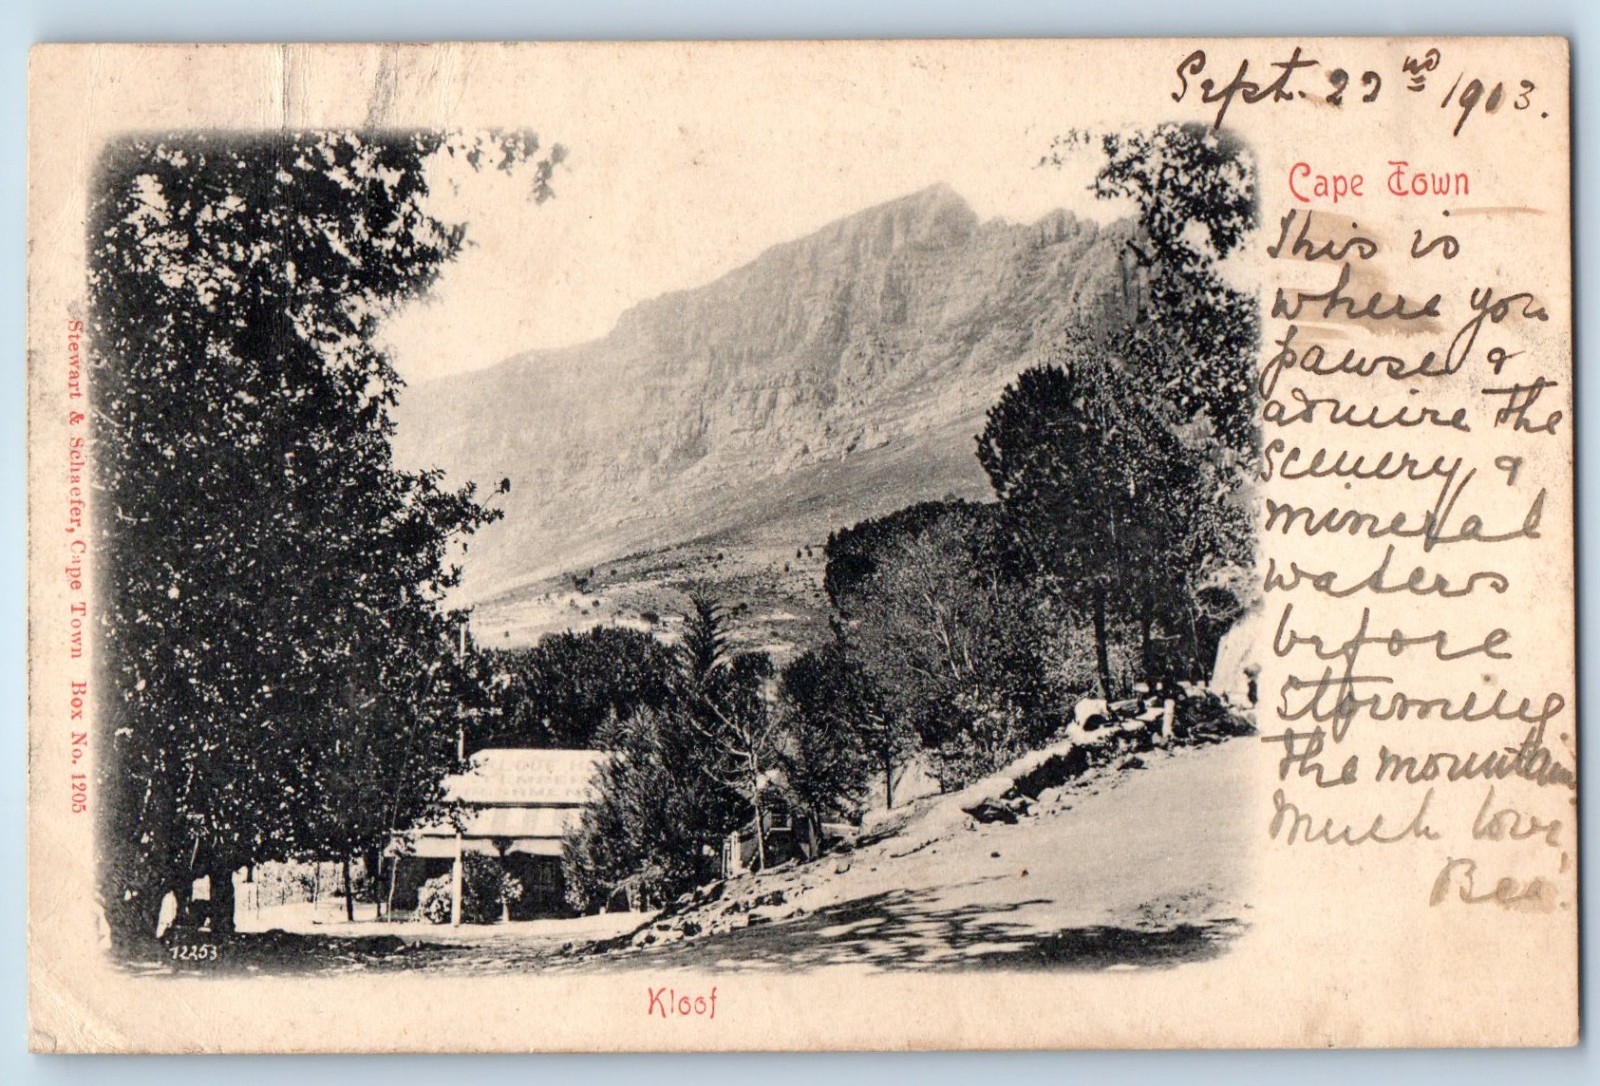 Sept. 22nd 1903.
Cape Town
This is
where you
pause &
admire the
scenery, &
mineral
waters
before
storming
the mountain
Much love,
Bea.
Stewart & Schaefer, Cape Town Box No. 1205
12253
Kloof